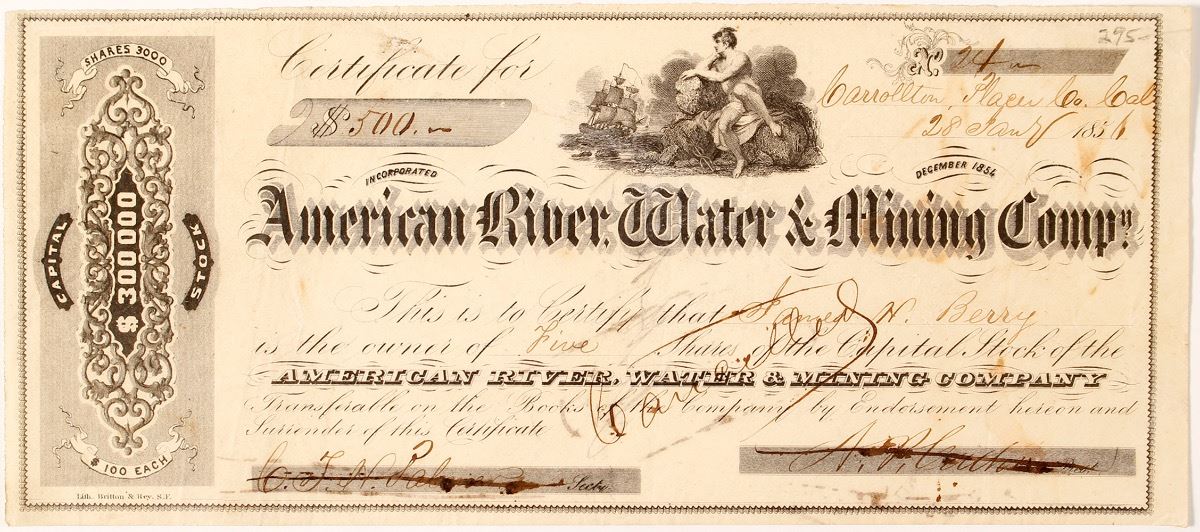 SHARES 3000
CAPITAL $ 300000 STOCK
$ 100 EACH
Lith. Britton & Rey. S.F.
295-
Certificate for
$ 500.
No. 24
Carrollton, Placer Co. Cal
28 Jany 1856
INCORPORATED DECEMBER 1854
American River, Water & Mining Compy.
This is to Certify that James N. Berry
is the owner of Five Shares of the Capital Stock of the
AMERICAN RIVER, WATER & MINING COMPANY
Transferable on the Books of the Company by Endorsement hereon and
Surrender of this Certificate
Cancelled
Secty.
Presdt.